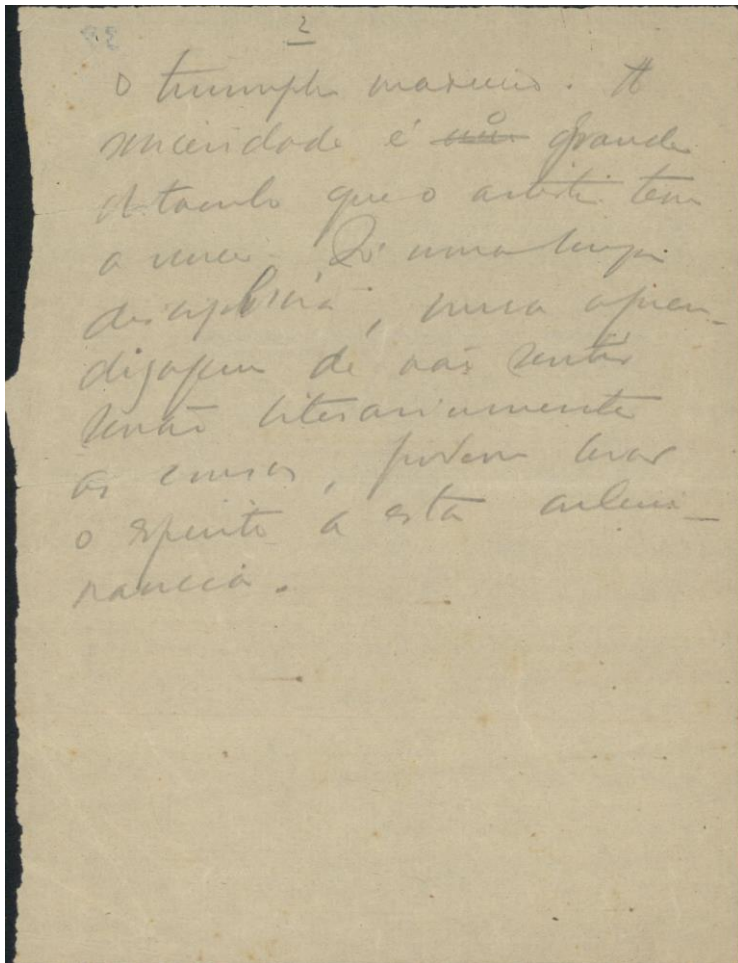 2
o triumpho maximo. A
sinceridade é o grande
obstaculo que o artista tem
a vencer. Só uma longa
disciplina, uma apren-
dizagem de não sentir
senão literariamente
as cousas, podem levar
o espirito a esta culmi-
nancia.